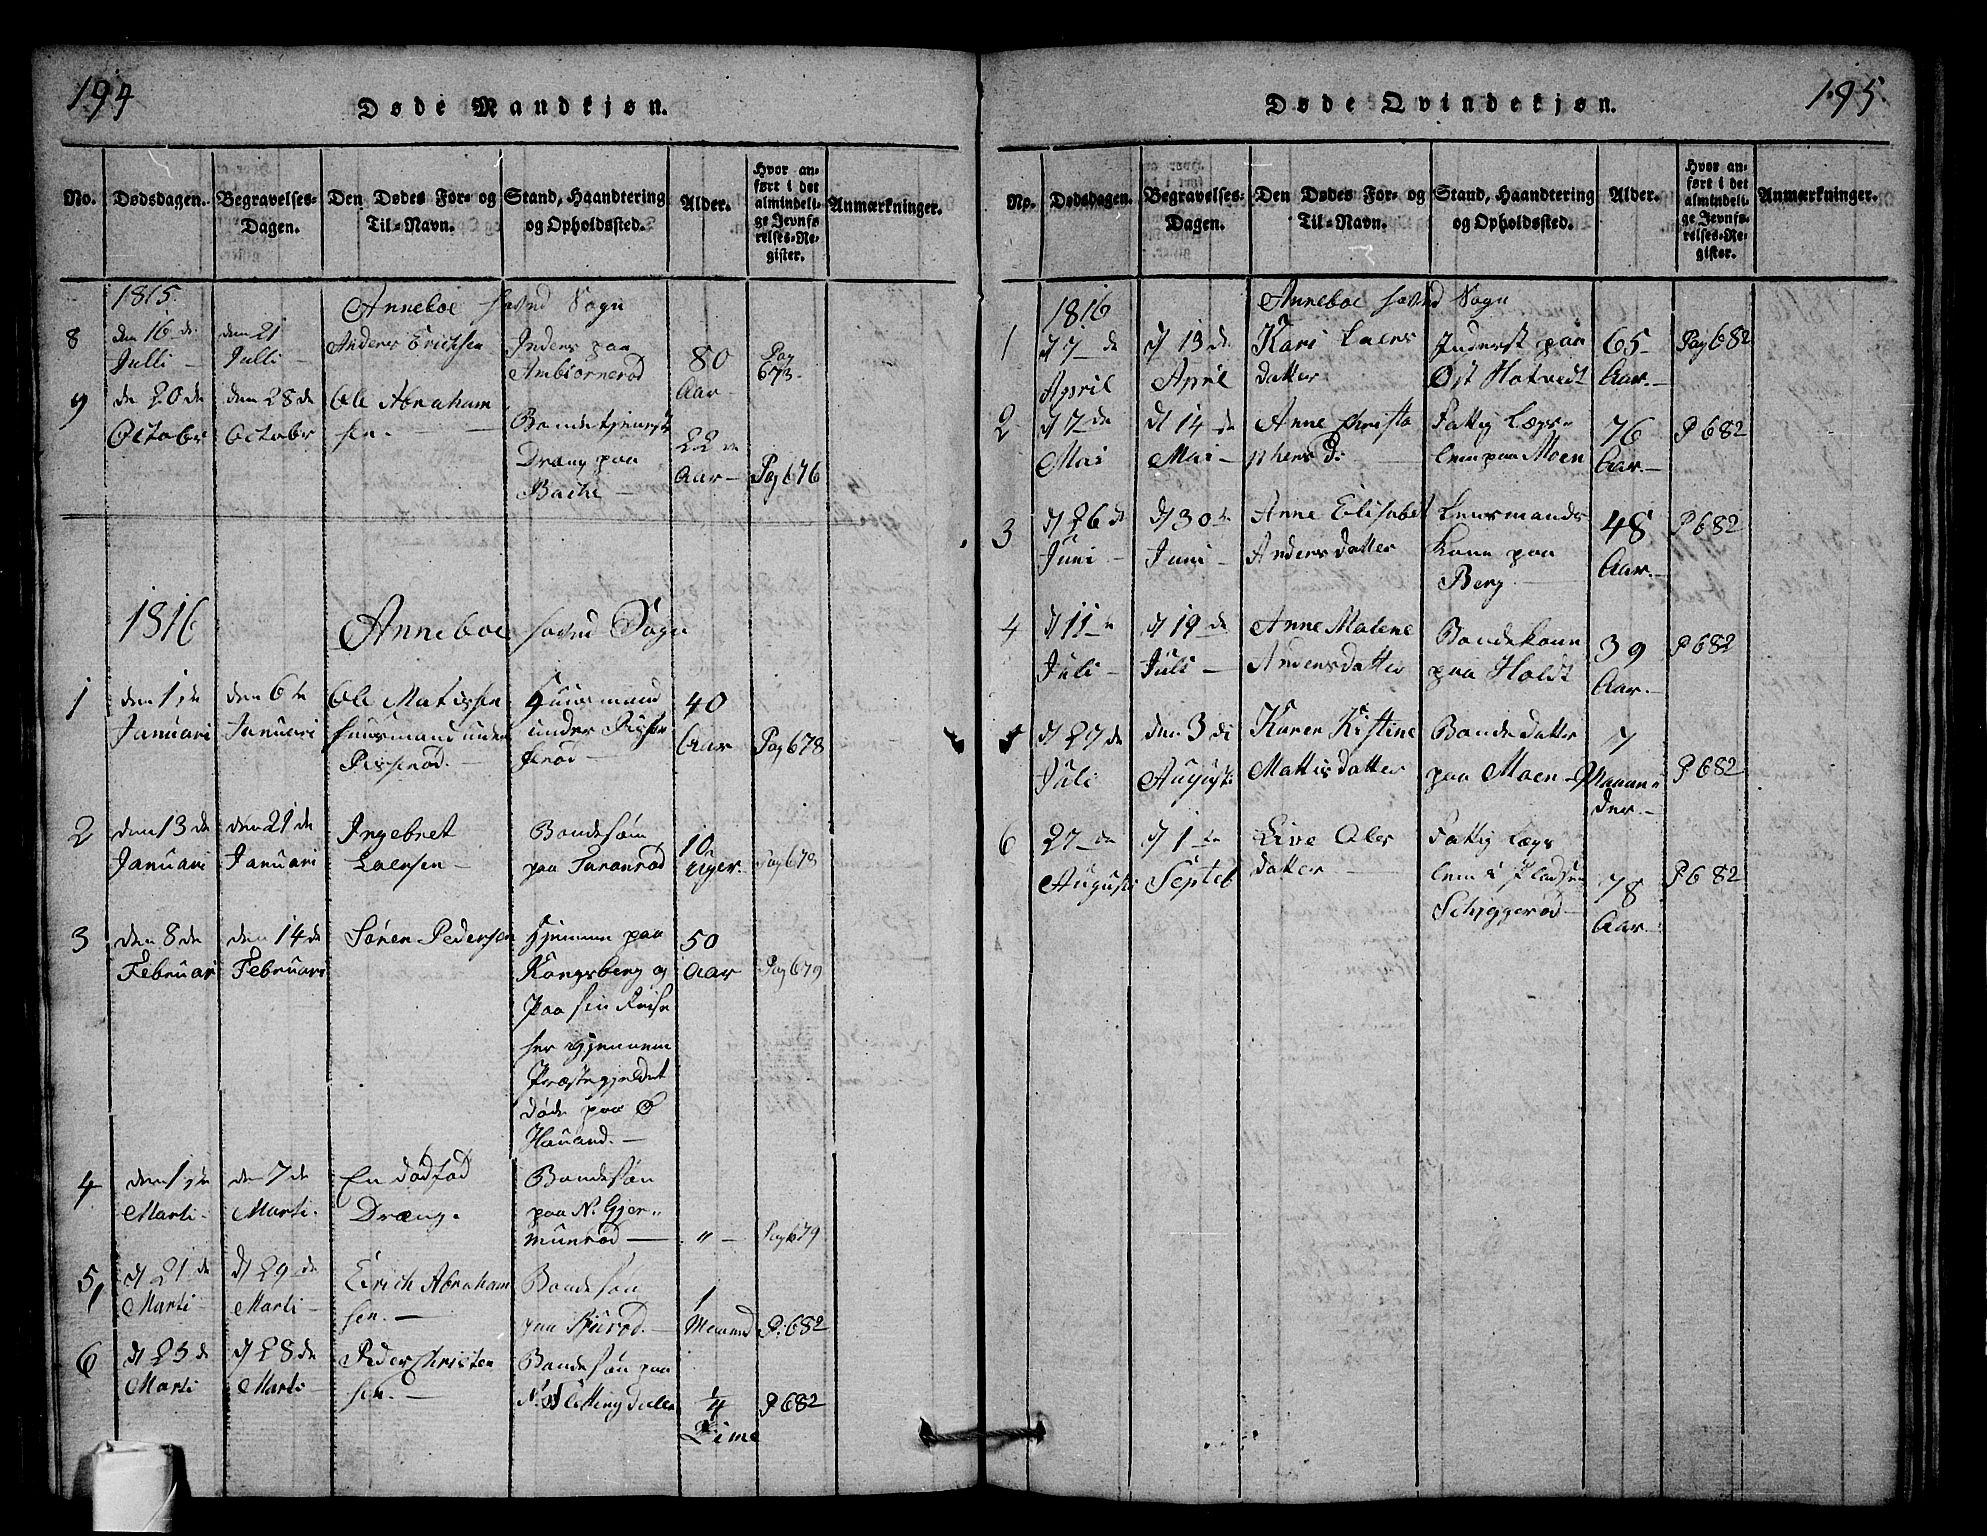 194
Døde Mandkjøn.
No. Dødsdagen. Begravelses-Dagen. Den Dødes For- og Til-Navn. Stand, Haandtering og Opholdssted. Alder. Hvor anført i det almindelige Jevnførelses-Register. Anmærkninger.
1815. Anneboe Sogn
8 den 16 de Julli - den 21 Julli - Anders Erichsen Inders paa Ambiørnerød 80 Aar - Pag 673.
9 de 20 de Octobr den 28 de Octobr Ole Abrahamsen. - Bondetjeneste Dreng paa Bache - 22 Aar - Pag 676
1816 Anneboe Sogn
1 den 1 te Januari den 6 te Januari Ole Matissen Huusmand under Pisserød. - Huusmand under 40 Aar Pag 678
2 den 13 de Januari den 21 de Januari Ingebret Laersen - Bondesøn paa Taranrød 10 Uger. Pag 678
3 den 8 de Februari den 14 de Februari Søren Pedersen hjemme paa Kongsberg og paa sin Reise her gjennem Præstegjeldet døde paa Ø Hauand. - 50 Aar Pag 679
4 den 1 te Marti. den 7 de Marti. En dødfød Dræng. Bondesøn paa N. Gjermunrød - " - Pag 679
5 d 21 de Marti - d 29 de Marti - Erich Abrahamsen. - Bondesøn paa 1 Maaned P. 682
6 d 23 de Marti d 28 de Marti - Peder Christensen. - Bondesøn paa N. Slettingdalen 1/4 Time P 682
195.
Døde Qvindekjøn.
No. Dødsdagen. Begravelses-Dagen. Den Dødes For- og Til-Navn. Stand, Haandtering og Opholdssted. Alder. Hvor anført i det almindelige Jevnførelses-Register. Anmærkninger.
1816 Anneboe Sogn
1 d 7 de April d 13 de April Kari Laers datter Inderst paa Øst Hotvedt 65 Aar. - Pag 682
2 d 7 de Mai d 14 de Mai - Anne Christophers D. Fattig Lægslem paa Moen 76 Aar - P 682
3 d 26 de Juni - d 30 te Juni - Anne Elisabet Anders datter Lensmands Kone paa Berg. - 48 Aar. - P 682
4 d 11 te Juli - d 19 de Juli - Anne Malene Andersdatter Bondekone paa Holdt 39 Aar. - P 682
d 27 de Juli den 3 de August. Karen Kistine Mattisdatter Bondedatter paa Moen - Maaneder - P 682
6 27 de August d 1 te Septeb Live Oles datter - Fattig Lægslem i Pladsen Schjggerød - 78 Aar - P 682